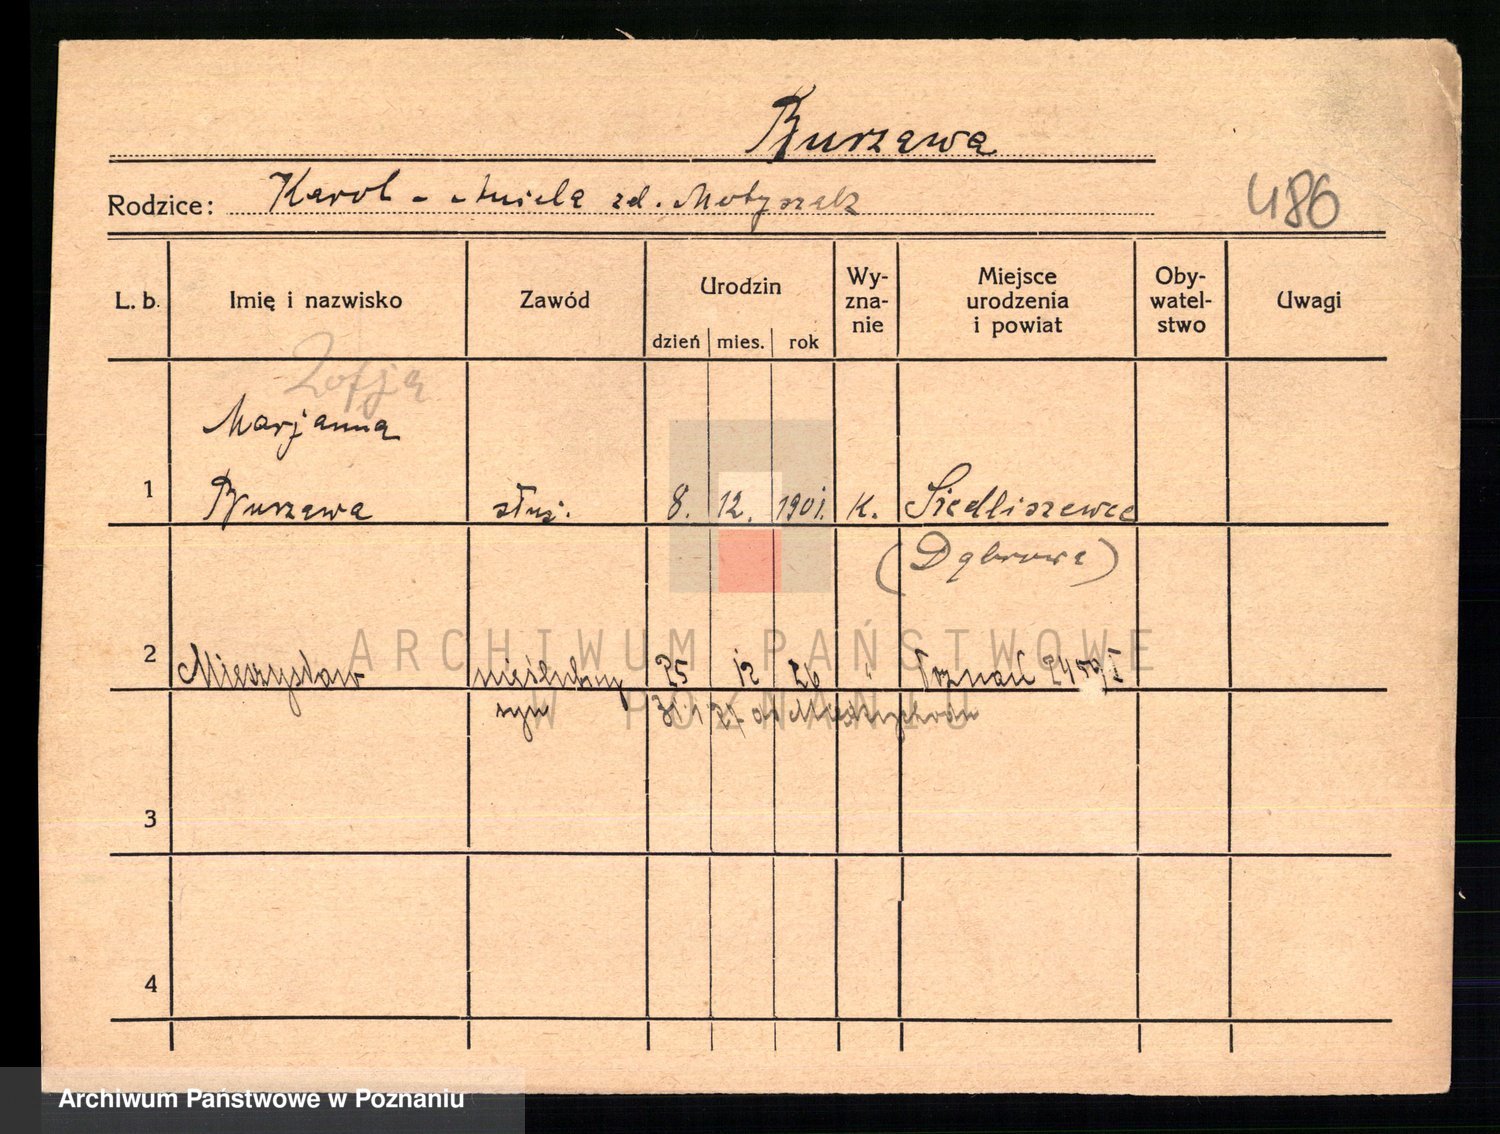 Burzawa
Rodzice: Karol - Aniela zd. Matyszak
486
L. b. Imię i nazwisko Zawód Urodzin dzień mies. rok Wy-zna-nie Miejsce urodzenia i powiat Oby-watel-stwo Uwagi
Zofja
Marjanna
1 Burzawa służ. 8. 12. 1901. K. Siedliszewce
(Dąbrowa)
2 Mieczysław nieślubny 25 12 26 " Poznań
syn
3
4
ARCHIWUM PAŃSTWOWE
W POZNANIU
Archiwum Państwowe w Poznaniu